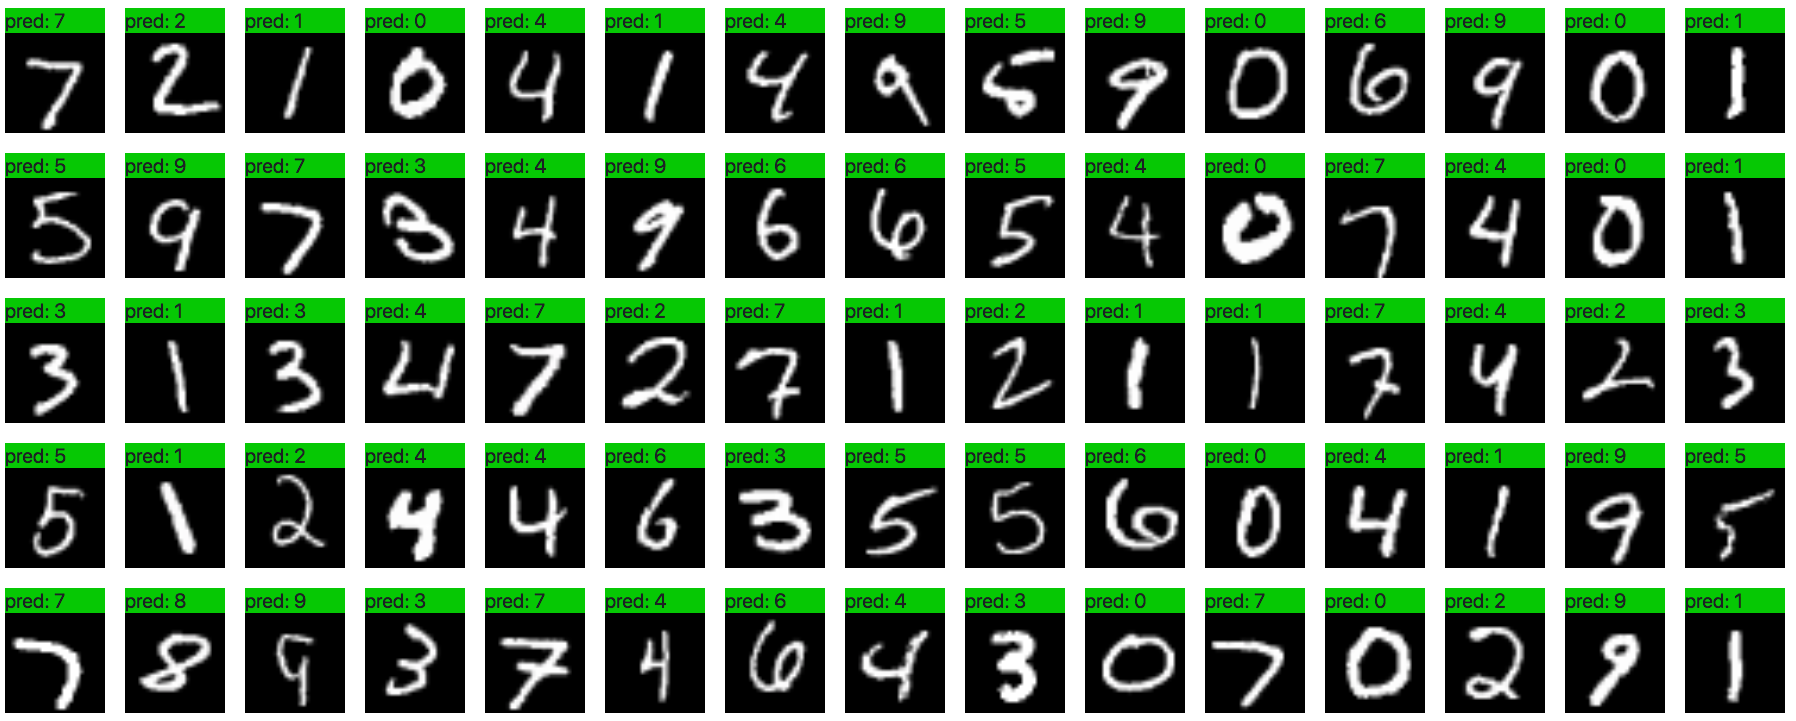 pred: 7 pred: 2 pred: 1 pred: 0 pred: 4 pred: 1 pred: 4 pred: 9 pred: 5 pred: 9 pred: 0 pred: 6 pred: 9 pred: 0 pred: 1
7 2 1 0 4 1 4 9 5 9 0 6 9 0 1
pred: 5 pred: 9 pred: 7 pred: 3 pred: 4 pred: 9 pred: 6 pred: 6 pred: 5 pred: 4 pred: 0 pred: 7 pred: 4 pred: 0 pred: 1
5 9 7 3 4 9 6 6 5 4 0 7 4 0 1
pred: 3 pred: 1 pred: 3 pred: 4 pred: 7 pred: 2 pred: 7 pred: 1 pred: 2 pred: 1 pred: 1 pred: 7 pred: 4 pred: 2 pred: 3
3 1 3 4 7 2 7 1 2 1 1 7 4 2 3
pred: 5 pred: 1 pred: 2 pred: 4 pred: 4 pred: 6 pred: 3 pred: 5 pred: 5 pred: 6 pred: 0 pred: 4 pred: 1 pred: 9 pred: 5
5 1 2 4 4 6 3 5 5 6 0 4 1 9 5
pred: 7 pred: 8 pred: 9 pred: 3 pred: 7 pred: 4 pred: 6 pred: 4 pred: 3 pred: 0 pred: 7 pred: 0 pred: 2 pred: 9 pred: 1
7 8 9 3 7 4 6 4 3 0 7 0 2 9 1